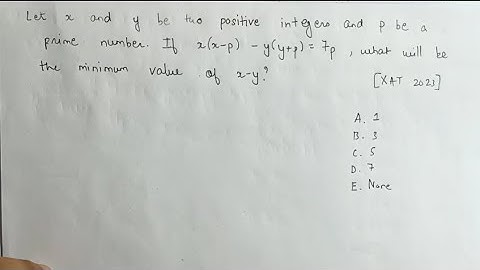 Let x and y be two positive integers and p be a
prime number. If x(x-p) - y(y+p) = 7p , what will be
the minimum value of x-y?
[XAT 2023]
A. 1
B. 3
C. 5
D. 7
E. None